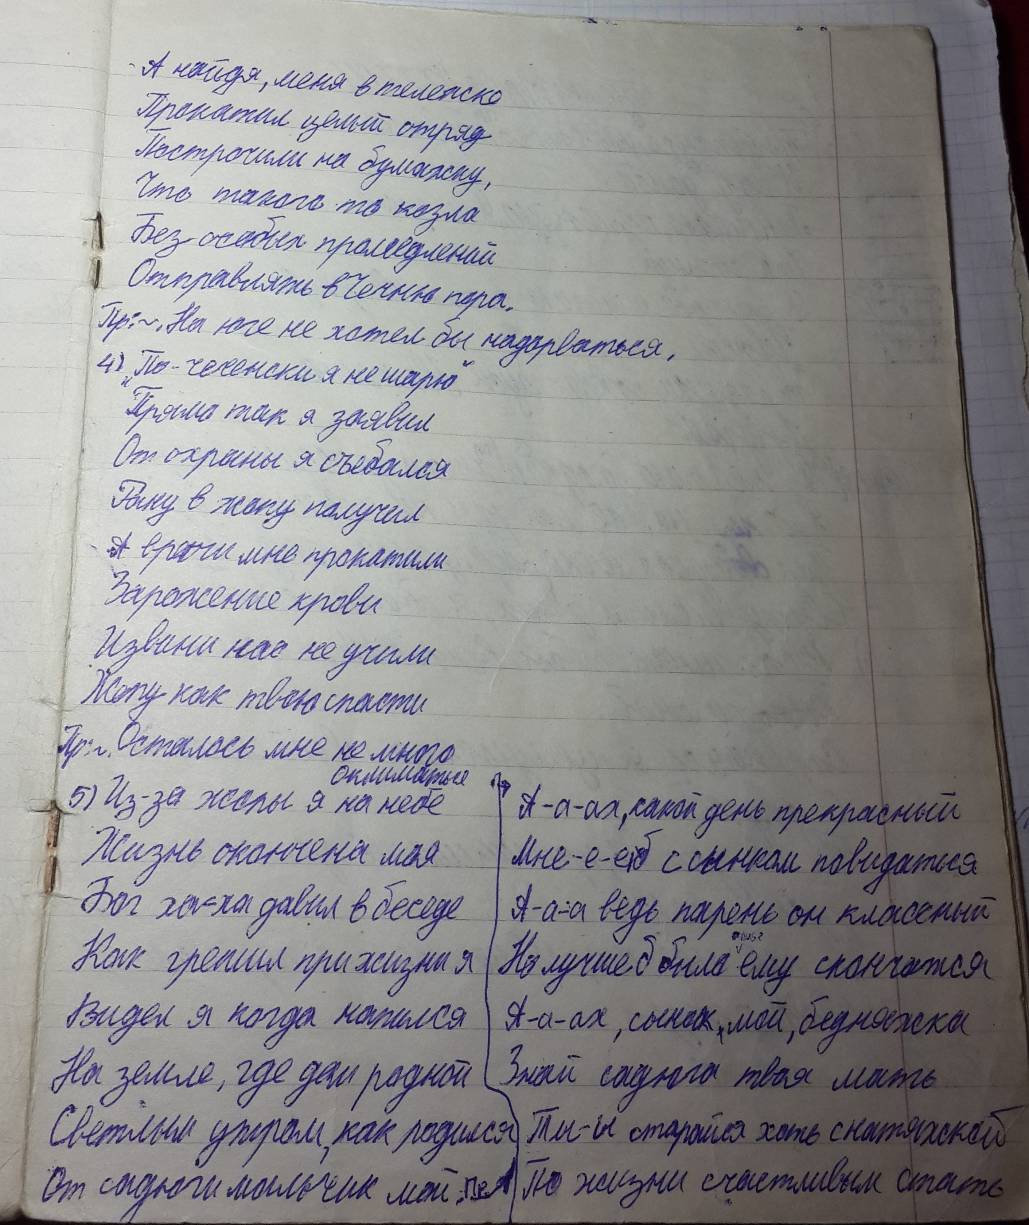 А найдя, меня в телепско
Прокатил целый отряд
Построчили на бумажку,
Что такого то козла
Без особых промедлений
Отправлять в Чечню пора.
Пр:~. На юге не хотел бы надорваться.
4) "По-чеченски я не шарю"
Прямо так я заявил
От охраны я съебался
Рану в жопу получил
А врачи мне прокатили
Заражение крови
Извани нас не учили
Жопу как твою спасти
Пр:~. Осталось мне не много
оклиматься
5) Из-за жопы я на небе
Жизнь окончена моя
Бог ха-ха давил в беседе
Как грешил при жизни я
Видел я когда напился
На земле, где дом родной
Светлым утром, как родился
От садюги мальчик мой
А-а-ах, какой день прекрасный
Мне-е-е б с сынком повидаться
А-а-а ведь парень он классный
Но лучше б было ему скончатся
А-а-ах, сынок, мой, бедняжка
Знай садюга твоя мать
Ты-ы старайся хоть с натяжкой
По жизни счастливым стать